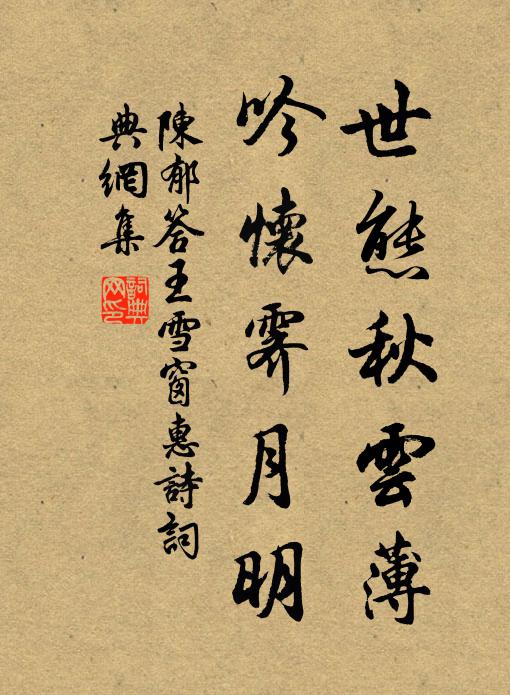 世態秋雲薄
吟懷霽月明
陳郁答王雪窗惠詩詞
典網集
詞典
网印